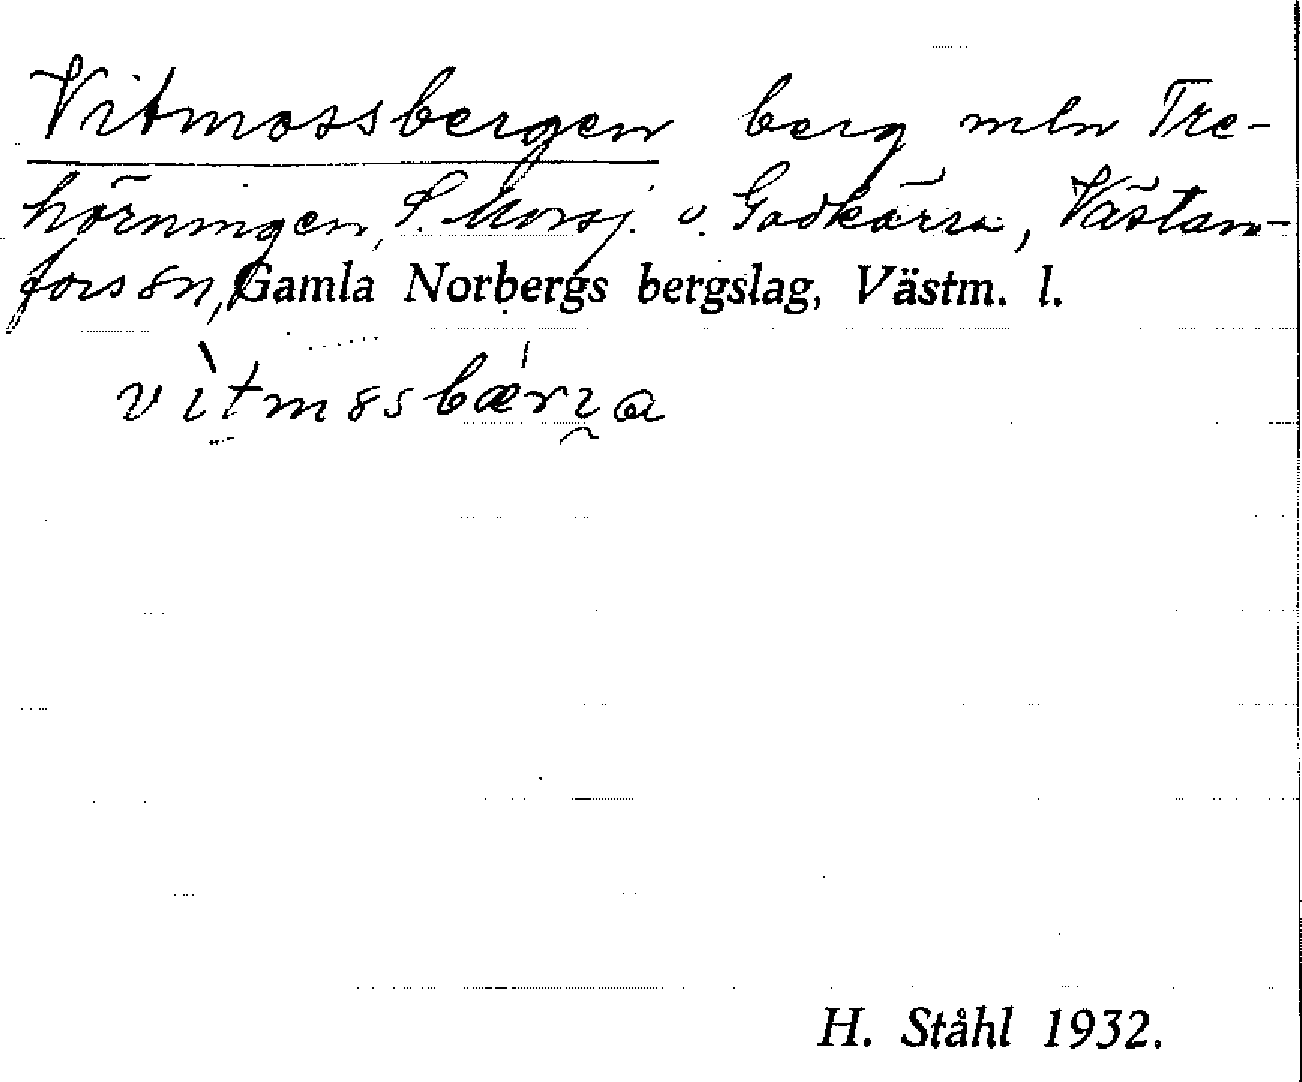 Vitmossbergen berg mln Tre-
hörningen, S. Morsj. o. Godkärra, Västan-
fors sn, Gamla Norbergs bergslag, Västm. l.
vìtmssbǽrɿa
H. Ståhl 1932.